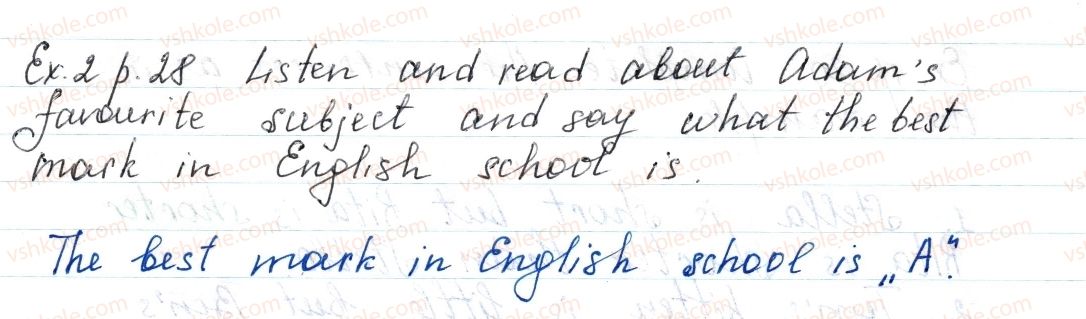 Ex. 2 p. 28 Listen and read about Adam's
favourite subject and say what the best
mark in English school is.
The best mark in English school is „A“.